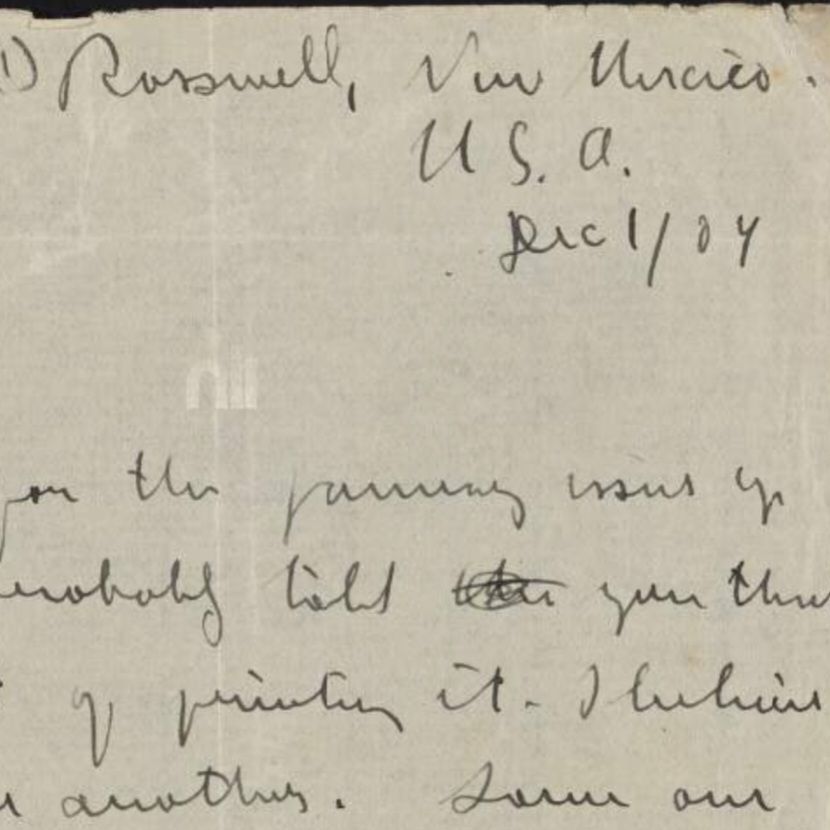 1) Rosswell, New Mexico.
U S. A.
Dec 1/04
for the January issue of
probably told you that
of printing it. I believe
another. Some one